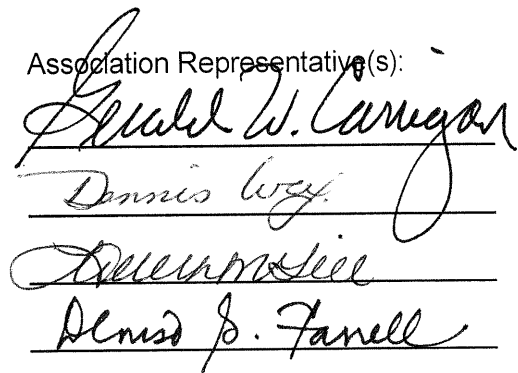 Association Representative(s):
Gerald W. Carrigan
Dennis
Denise G. Farrell